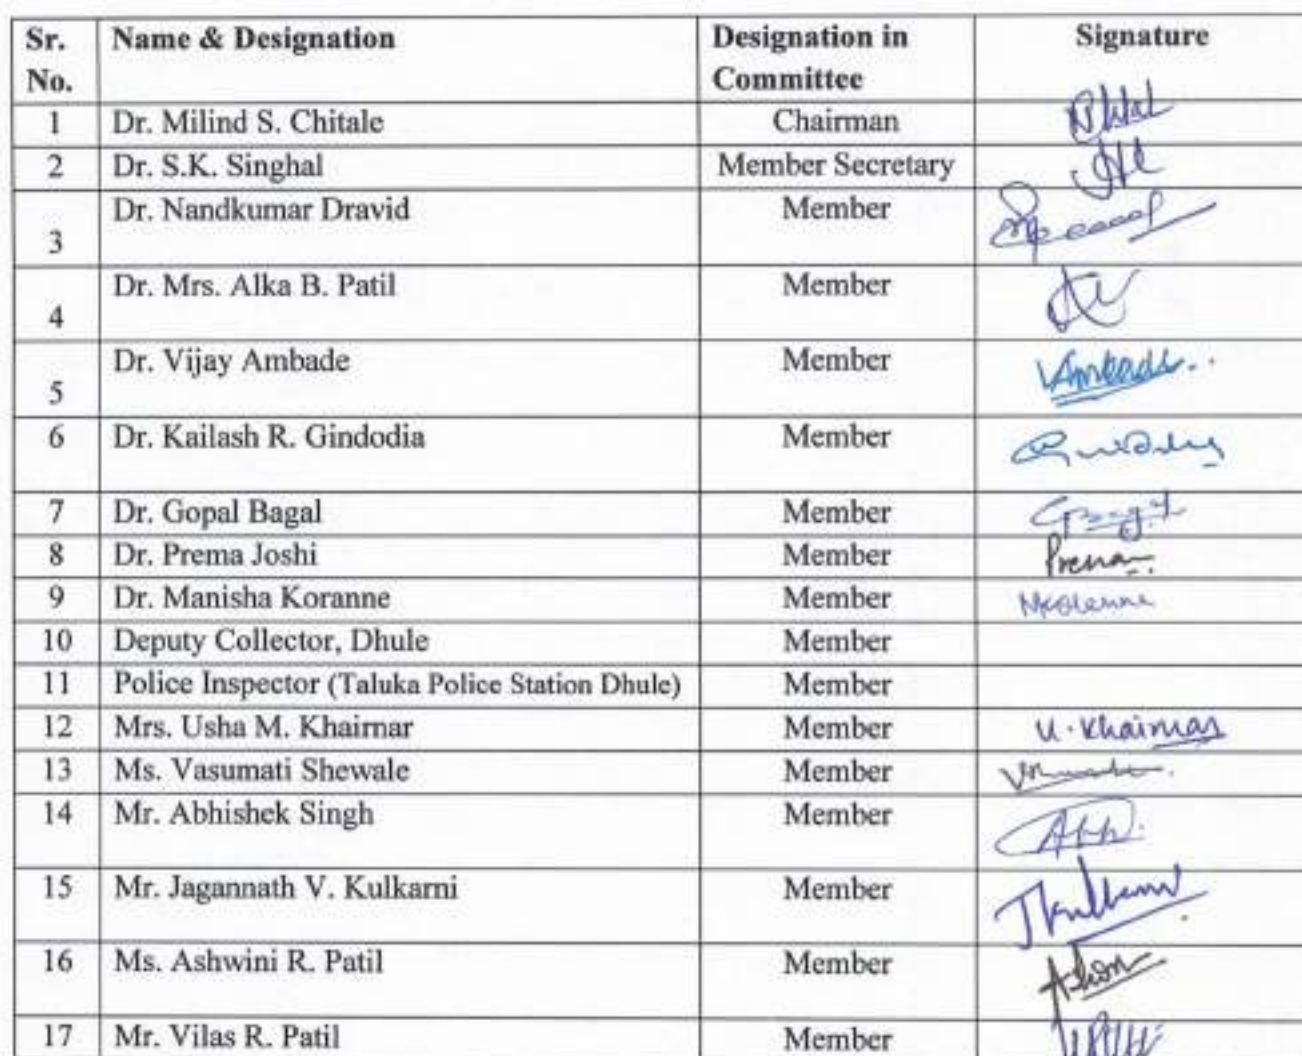 Sr. No. Name & Designation Designation in Committee Signature
1 Dr. Milind S. Chitale Chairman
2 Dr. S.K. Singhal Member Secretary
3 Dr. Nandkumar Dravid Member
4 Dr. Mrs. Alka B. Patil Member
5 Dr. Vijay Ambade Member VAmbade
6 Dr. Kailash R. Gindodia Member
7 Dr. Gopal Bagal Member
8 Dr. Prema Joshi Member Prema
9 Dr. Manisha Koranne Member MKoranne
10 Deputy Collector, Dhule Member
11 Police Inspector (Taluka Police Station Dhule) Member
12 Mrs. Usha M. Khairnar Member U. Khairnar
13 Ms. Vasumati Shewale Member
14 Mr. Abhishek Singh Member
15 Mr. Jagannath V. Kulkarni Member JKulkarni
16 Ms. Ashwini R. Patil Member
17 Mr. Vilas R. Patil Member